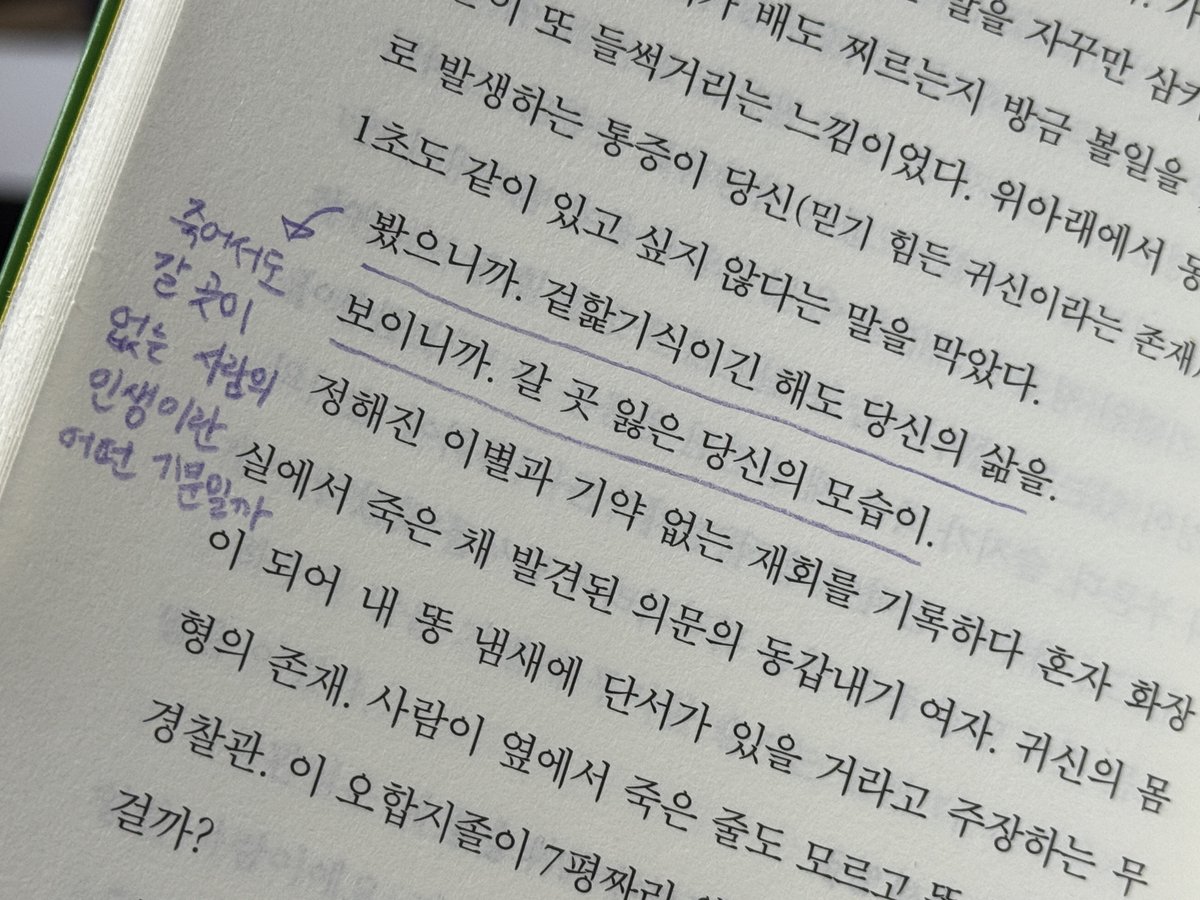 말을 자꾸만 삼키
배도 찌르는지 방금 볼일을
또 들썩거리는 느낌이었다. 위아래에서 동
로 발생하는 통증이 당신(믿기 힘든 귀신이라는 존재)
1초도 같이 있고 싶지 않다는 말을 막았다.
봤으니까. 겉핥기식이긴 해도 당신의 삶을.
보이니까. 갈 곳 잃은 당신의 모습이.
정해진 이별과 기약 없는 재회를 기록하다 혼자 화장
실에서 죽은 채 발견된 의문의 동갑내기 여자. 귀신의 몸
이 되어 내 똥 냄새에 단서가 있을 거라고 주장하는 무
형의 존재. 사람이 옆에서 죽은 줄도 모르고
경찰관. 이 오합지졸이 7평짜리
걸까?
죽어서도
갈 곳이
없는 사람의
인생이란
어떤 기분일까